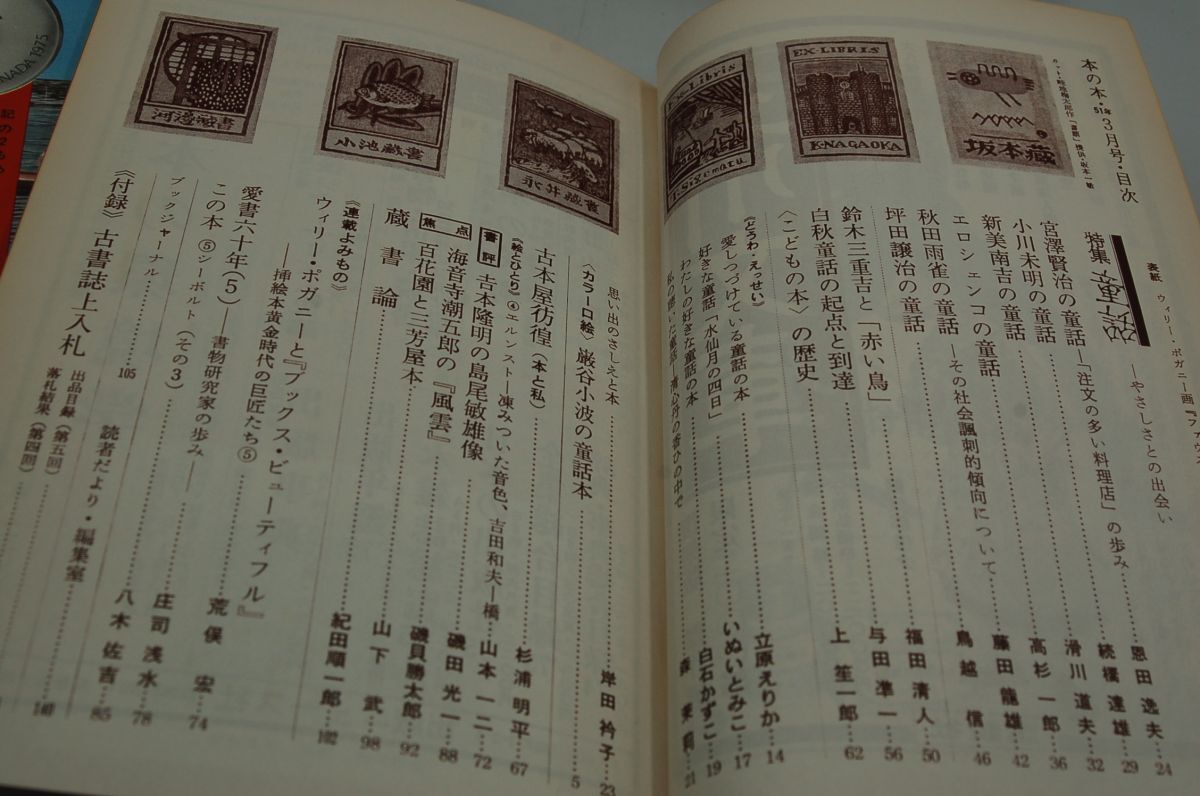 本の本・51年3月号・目次
特集
—やさしさとの出会い
恩田逸夫……24
宮澤賢治の童話—「注文の多い料理店」の歩み
続橋達雄……29
小川未明の童話……滑川道夫……32
新美南吉の童話……高杉一郎……36
エロシェンコの童話—その社会諷刺的傾向について
藤田龍雄……42
秋田雨雀の童話……鳥越信……46
坪田譲治の童話……福田清人……50
鈴木三重吉と「赤い鳥」……与田凖一……56
白秋童話の起点と到達
〈こどもの本〉の歴史……上笙一郎……62
《どうわ・えっせい》
愛しつづけている童話の本……立原えりか……14
好きな童話「水仙月の四日」……いぬいとみこ……17
わたしの好きな童話の本……白石かずこ……19
森茉莉……21
思い出のさしえと本……岸田衿子……23
〈カラー口絵〉巌谷小波の童話本……5
古本屋彷徨(本と私)……杉浦明平……67
《絵とひとり》④エルンスト—凍みついた音色、吉田和夫—橋……山本一二……72
書評 吉本隆明の島尾敏雄像……磯田光一……88
焦点 海音寺潮五郎の『風雲』……磯貝勝太郎……92
百花園と三芳屋本……山下武……98
蔵書論……紀田順一郎……102
《連載よみもの》
ウィリー・ポガニーと『ブックス・ビューティフル』
——挿絵本黄金時代の巨匠たち⑤……荒俣宏……74
愛書六十年(5)——書物研究家の歩み——……庄司浅水……78
この本 ⑤シーボルト(その3)……八木佐吉……85
ブックジャーナル……105
読者だより・編集室……140
《付録》古書誌上入札 出品目録(第五回)
落札結果(第四回)
EX-LIBRIS
坂本蔵
EX-LIBRIS
K·NAGAOKA
Ex Libris
永井蔵書
小池蔵書
河邊蔵書
NADA 1975